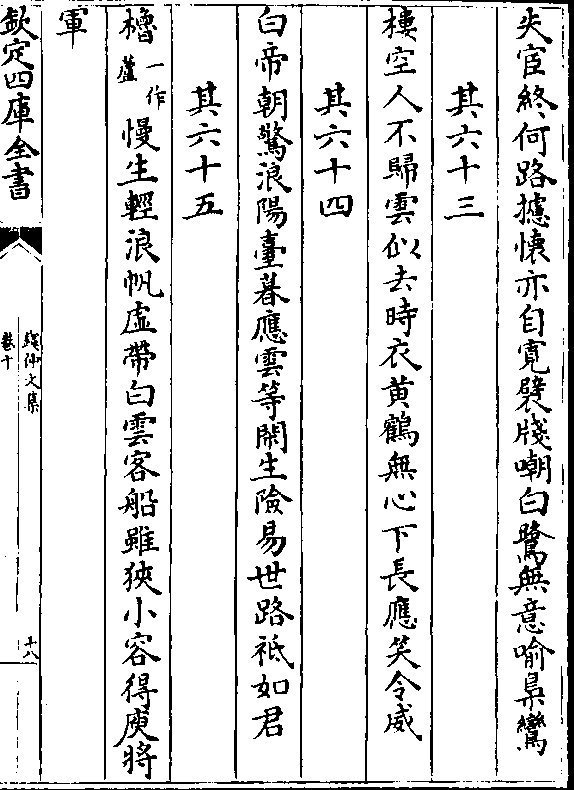 失宦終何路攄懷亦自寛襞牋嘲白鷺無意喻梟鸞
其六十三
樓空人不歸雲似去時衣黄鶴無心下長應笑令威
其六十四
白帝朝驚浪陽臺暮應雲等閒生險易世路祗如君
其六十五
櫓一作蘆慢生輕浪帆虛帶白雲客船雖狹小容得庾將
軍
欽定四庫全書
錢仲文集
卷十
十八